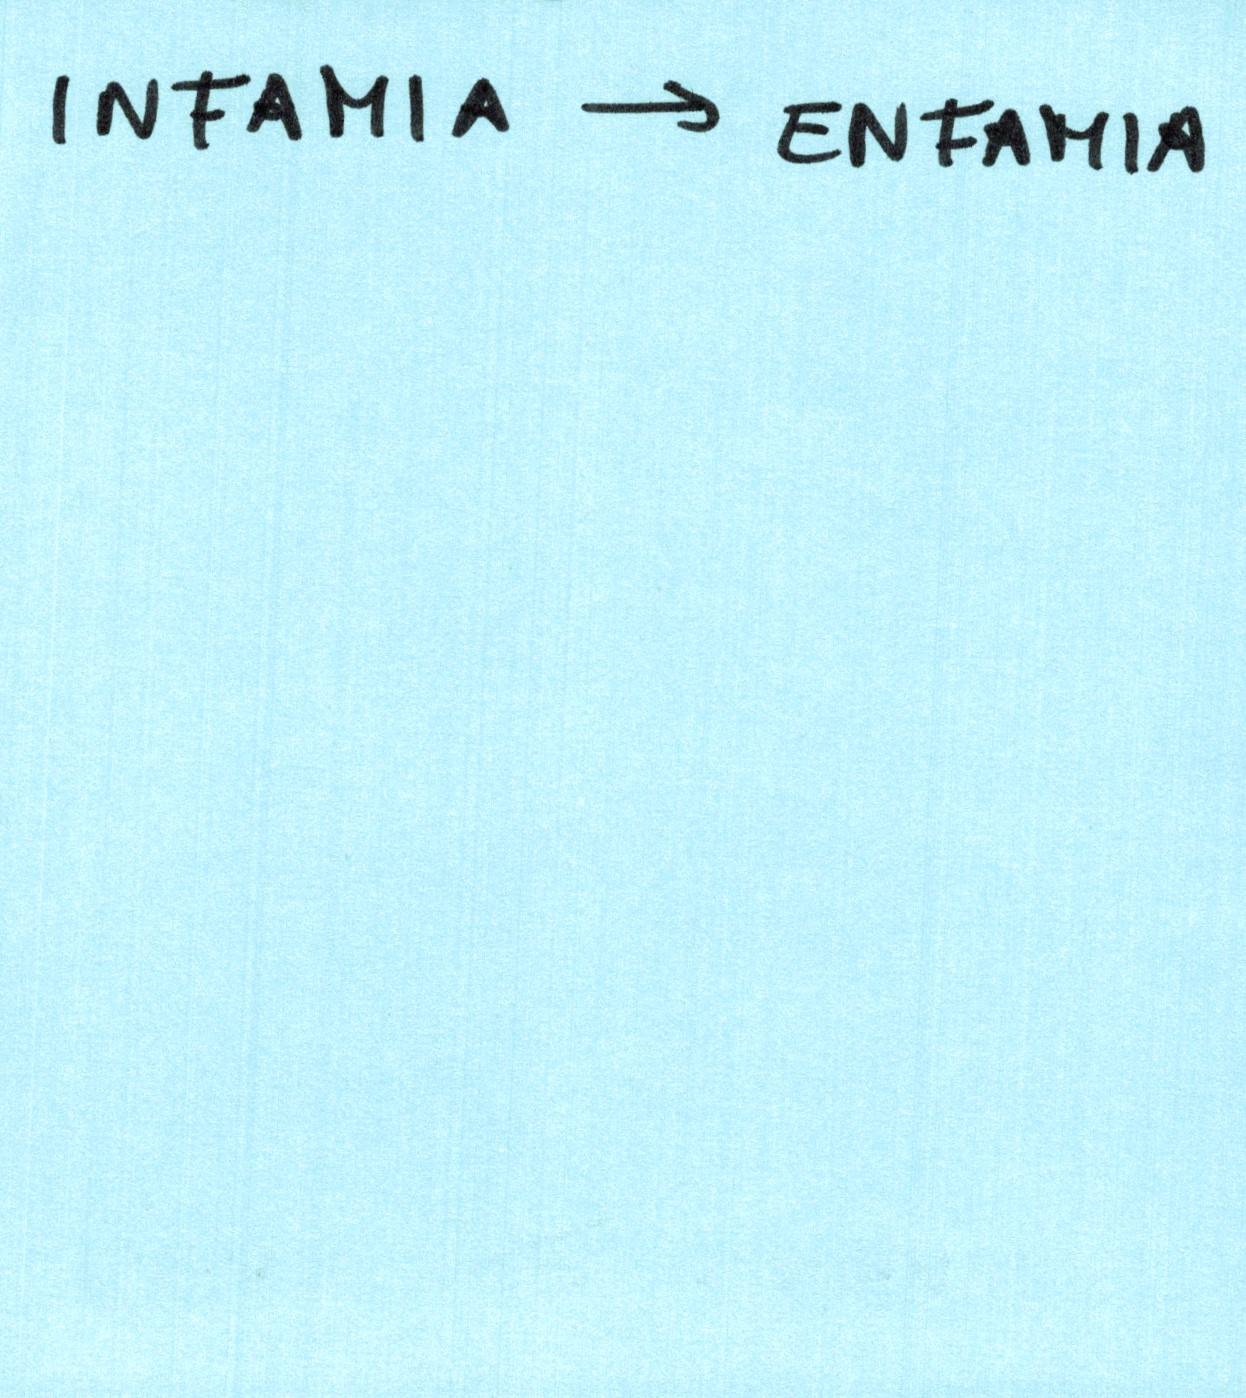 INFAMIA → ENFAMIA